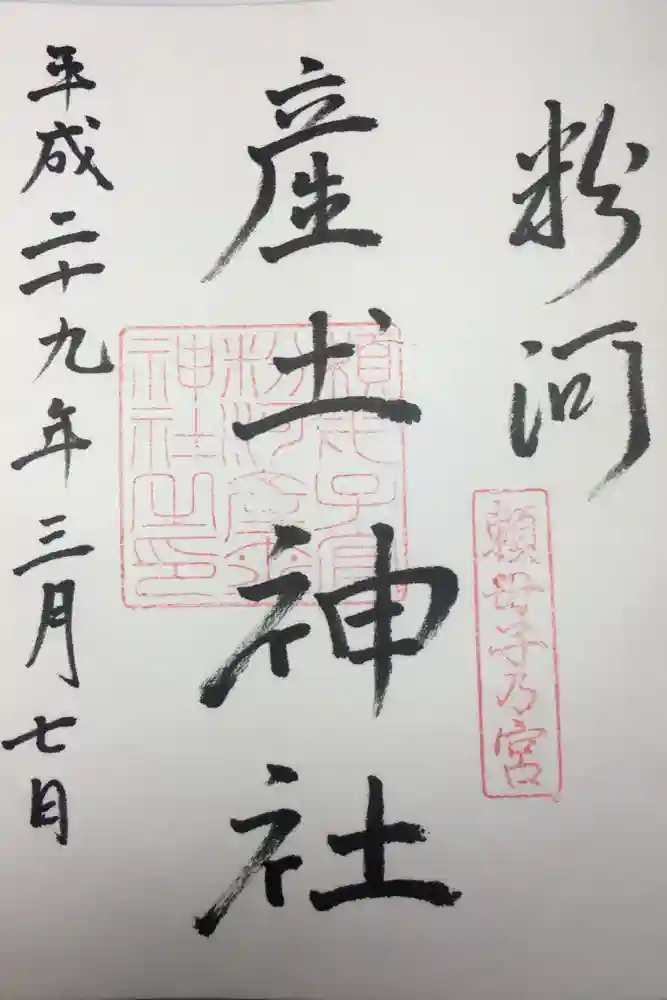 粉河
頼母子乃宮
産圡神社
頼母子宮
粉河産土
神社之印
平成二十九年三月七日